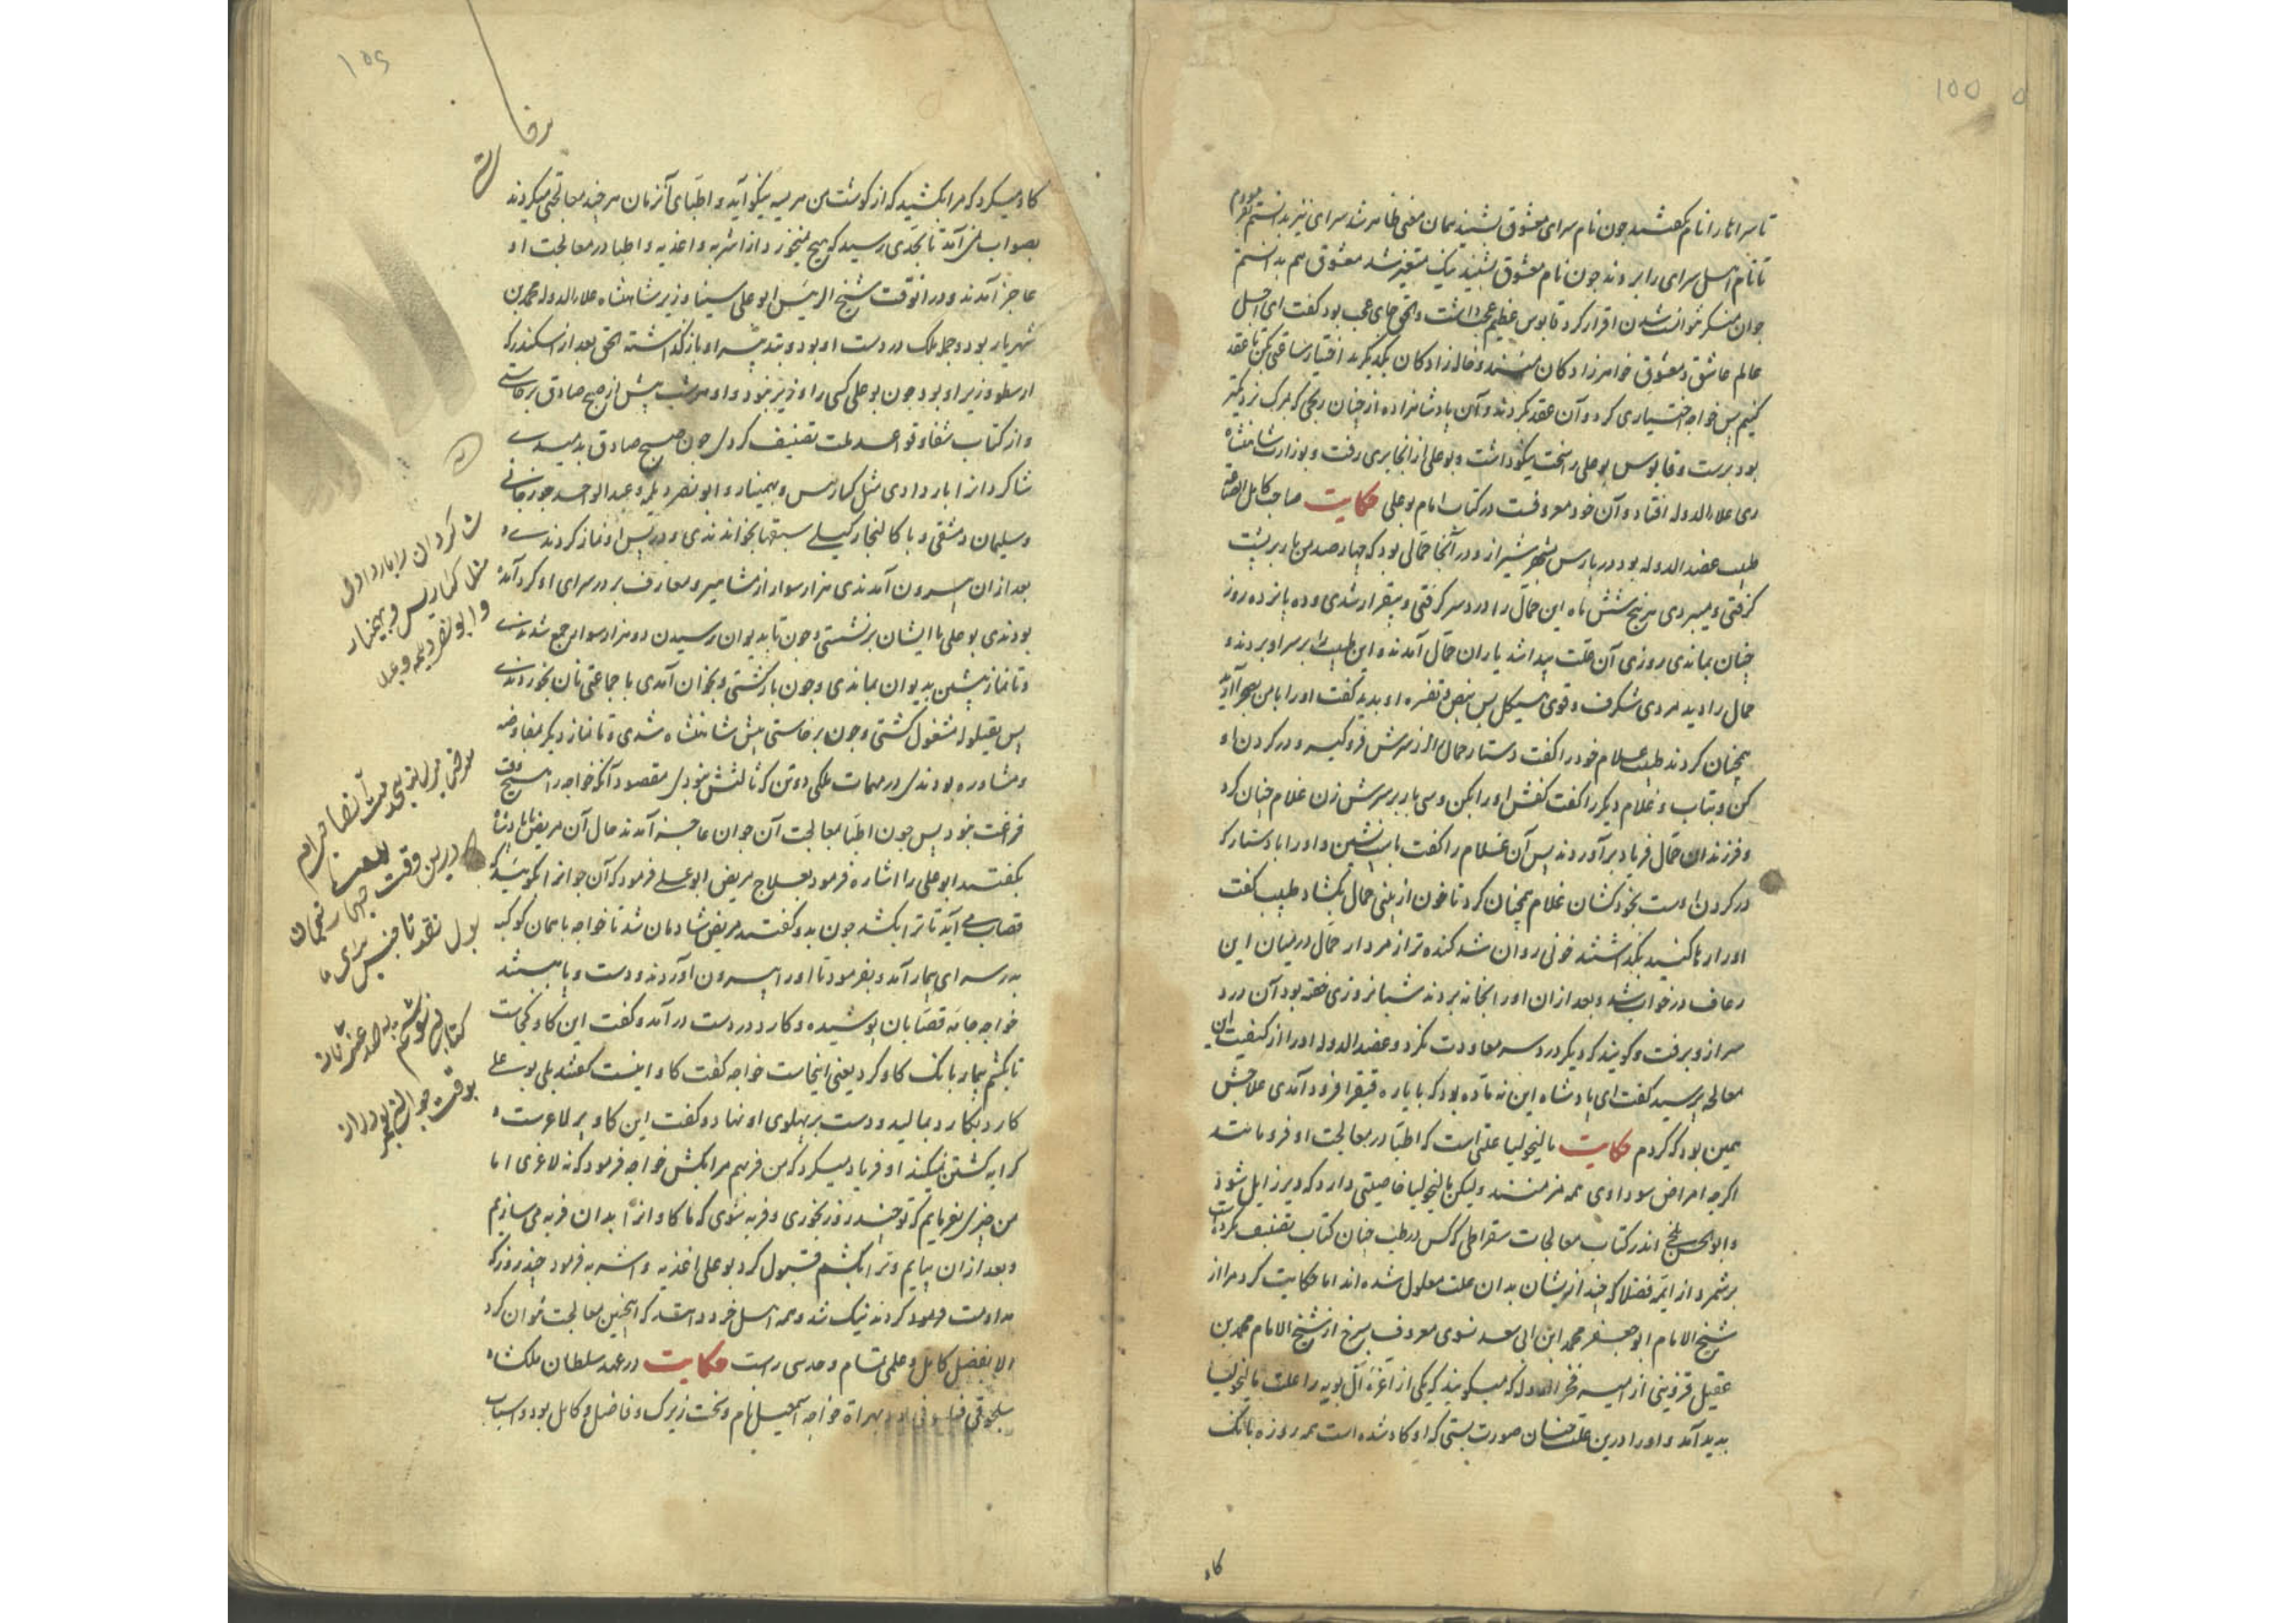 تا سراها را نام گفتند چون نام سرای معشوق بشنید همان معنی ظاهر شد سرای نیز بدانستم بفرمودم
تا نام اهل سرای را بردند چون نام معشوق بشنید نیک متغیر شد معشوق هم بدانستم
جوان منکر نتوانست شدن اقرار کرد قابوس عظیم عجب داشت و الحق جای عجب بود گفت ای اجل
عالم عاشق و معشوق خواهرزادگان منند و خاله زادگان یکدیگرند اختیار ساعتی کن تا عقد
کنیم پس خواجه اختیاری کرد و آن عقد بکردند و آن پادشاهزاده از چنان رنجی که بمرگ نزدیکتر
بود برست و قابوس بوعلی را سخت نیکو داشت و بوعلی از آنجا بری رفت و بوزارت شاهنشاه
ری علاءالدوله افتاد و آن خود معروفست در کتاب امام بوعلی حکایت صاحب کامل الصناعه
طبیب عضدالدوله بود در پارس بشهر شیراز و در آنجا حمالی بود که چهارصد من بار بر پشت
گرفتی و میبردی هر پنج شش ماه این حمال را درد سر گرفتی و بیقرار شدی و ده پانزده روز
چنان بماندی روزی آن علت پیدا شد یاران حمال آمدند و این طبیب را بر سر او بردند و
حمال را دید مردی شگرف و قوی هیکل پس نبض و تفسره او بدید گفت او را با من بصحرا آرید
همچنان کردند طبیب غلام خود را گفت دستار حمال از سرش فرو گیر و در گردن او
کن و بتاب و غلام دیگر را گفت کفش او را بکن و سی بار بر سرش زن غلام چنان کرد
و فرزندان حمال فریاد برآوردند پس آن غلام را گفت باسب نشین و او را با دستار که
در گردن اوست بخود کشان غلام همچنان کرد تا خون از بینی حمال بگشاد طبیب گفت
او را رها کنید بگذاشتند خونی روان شد گنده تر از مردار حمال در میان این
رعاف در خواب شد و بعد از آن او را بخانه بردند شبانروزی خفته بود آن درد
سر از و برفت و گویند که دیگر درد سر معاودت نکرد و عضدالدوله او را از کیفیت این
معالجه پرسید گفت ای پادشاه این نه ماده بود که بایاره فیقرا فرود آمدی علاجش
همین بود که کردم حکایت مالیخولیا علتی است که اطبا در معالجت او فرو مانند
اگرچه امراض سوداوی همه مزمننند ولیکن مالیخولیا خاصیتی دارد که دیر زایل شود
و ابوالحسن بلخ اندر کتاب معالجات بقراطی که کس در طب چنان کتاب تصنیف نکرده
برشمرد از ایمه فضلا که چند از ایشان بدان علت معلول شده اند اما حکایت کرد مرا از
شیخ الامام ابوجعفر محمد ابن ابی سعد نسوی معروف بسرخ از شیخ الامام محمد بن
عقیل قزوینی از امیر فخرالدوله که میگویند که یکی از اعزه آل بویه را علت مالیخولیا
پدید آمد و او را درین علت چنان صورت بستی که او گاو شده است همه روزه بانگ
گاو
گاو میکرد که مرا بکشید که از گوشت من هریسه نیکو آید و اطبای آنزمان هر چند معالجتی میکردند
بصواب نمی آمد تا بحدی رسید که هیچ نمیخورد از اشربه و اغذیه و اطبا در معالجت او
عاجز آمدند و در آنوقت شیخ الرئیس ابوعلی سینا وزیر شاهنشاه علاءالدوله محمد بن
شهریار بود و جمله ملک در دست او بود و تدبیر باو باز گذاشته الحق بعد از اسکندر که
ارسطو وزیر او بود چون بوعلی کسی را وزیر نبود و او هر شب پیش از صبح صادق برخاستی
و از کتاب شفا و قواعد تصنیف کردی چون صبح صادق بدمیدی
شاگردانرا بار دادی مثل کیاریس و بهمنیار و ابونصر دیلم و عبدالواحد جوزجانی
و سلیمان دمشقی و باکالنجار گیلی سبقها بخواندندی و در پس او نماز کردندی و
بعد از آن بیرون آمدندی هزار سوار از مشاهیر و معارف بر در سرای او گرد آمده
بودندی بوعلی با ایشان برنشستی و چون تا بدیوان رسیدن دو هزار سوار جمع شدندی
و تا نماز پیشین بدیوان بماندی و چون بازگشتی و بخوان آمدی با جماعتی نان بخوردندی
پس بقیلوله مشغول گشتی و چون برخاستی پیش شاهنشاه شدی و تا نماز دیگر مفاوضه
و مشاوره بودندی در مهمات ملکی دو تن که ثالثش نبودی مقصود آنکه خواجه را هیچ وقت
فراغت نبود پس چون اطبا بمعالجت آن جوان عاجز آمدند حال آن مریض با پادشاه
بگفتند ابوعلی را اشاره فرمود بعلاج مریض ابوعلی فرمود که آن جوانرا گویید که
قصاب می آید تا ترا بکشد چون بدو گفتند مریض شادمان شد تا خواجه با همان کوکبه
بدر سرای بیمار آمد و بفرمود تا او را بیرون آوردند و دست و پا ببستند
خواجه جامه قصابان پوشیده و کارد در دست درآمد و گفت این گاو کجاست
تا بکشم بیمار بانگ گاو کرد یعنی اینجاست خواجه گفت گاو اینست گفتند بلی بوعلی
کارد بکارد بمالید و دست بر پهلوی او نهاد و گفت این گاو بر لاغرست
کرایه کشتن نمیکند او فریاد میکرد که من فربهم مرا بکش خواجه فرمود که نه لاغری اما
من چیزی بفرمایم که تو چند روز بخوری و فربه شوی که ما گاوانرا بدان فربه می سازیم
و بعد از آن بیایم و ترا بکشم قبول کرد بوعلی اغذیه و اشربه فرمود چند روز که
مداومت نمود کردند نیک شد و همه اهل خرد دانند که اینچنین معالجت نتوان کرد
الا بفضل کامل و علمی تمام و حدسی راست حکایت در عهد سلطان ملکشاه
سلجوقی بهراة خواجه اسمعیل نام و سخت زیرک و فاضل و کامل بود و اسباب
شاگردان را بار دادی
مثل کیاریس و بهمنیار
و ابونصر دیلم و عبد
درین وقت